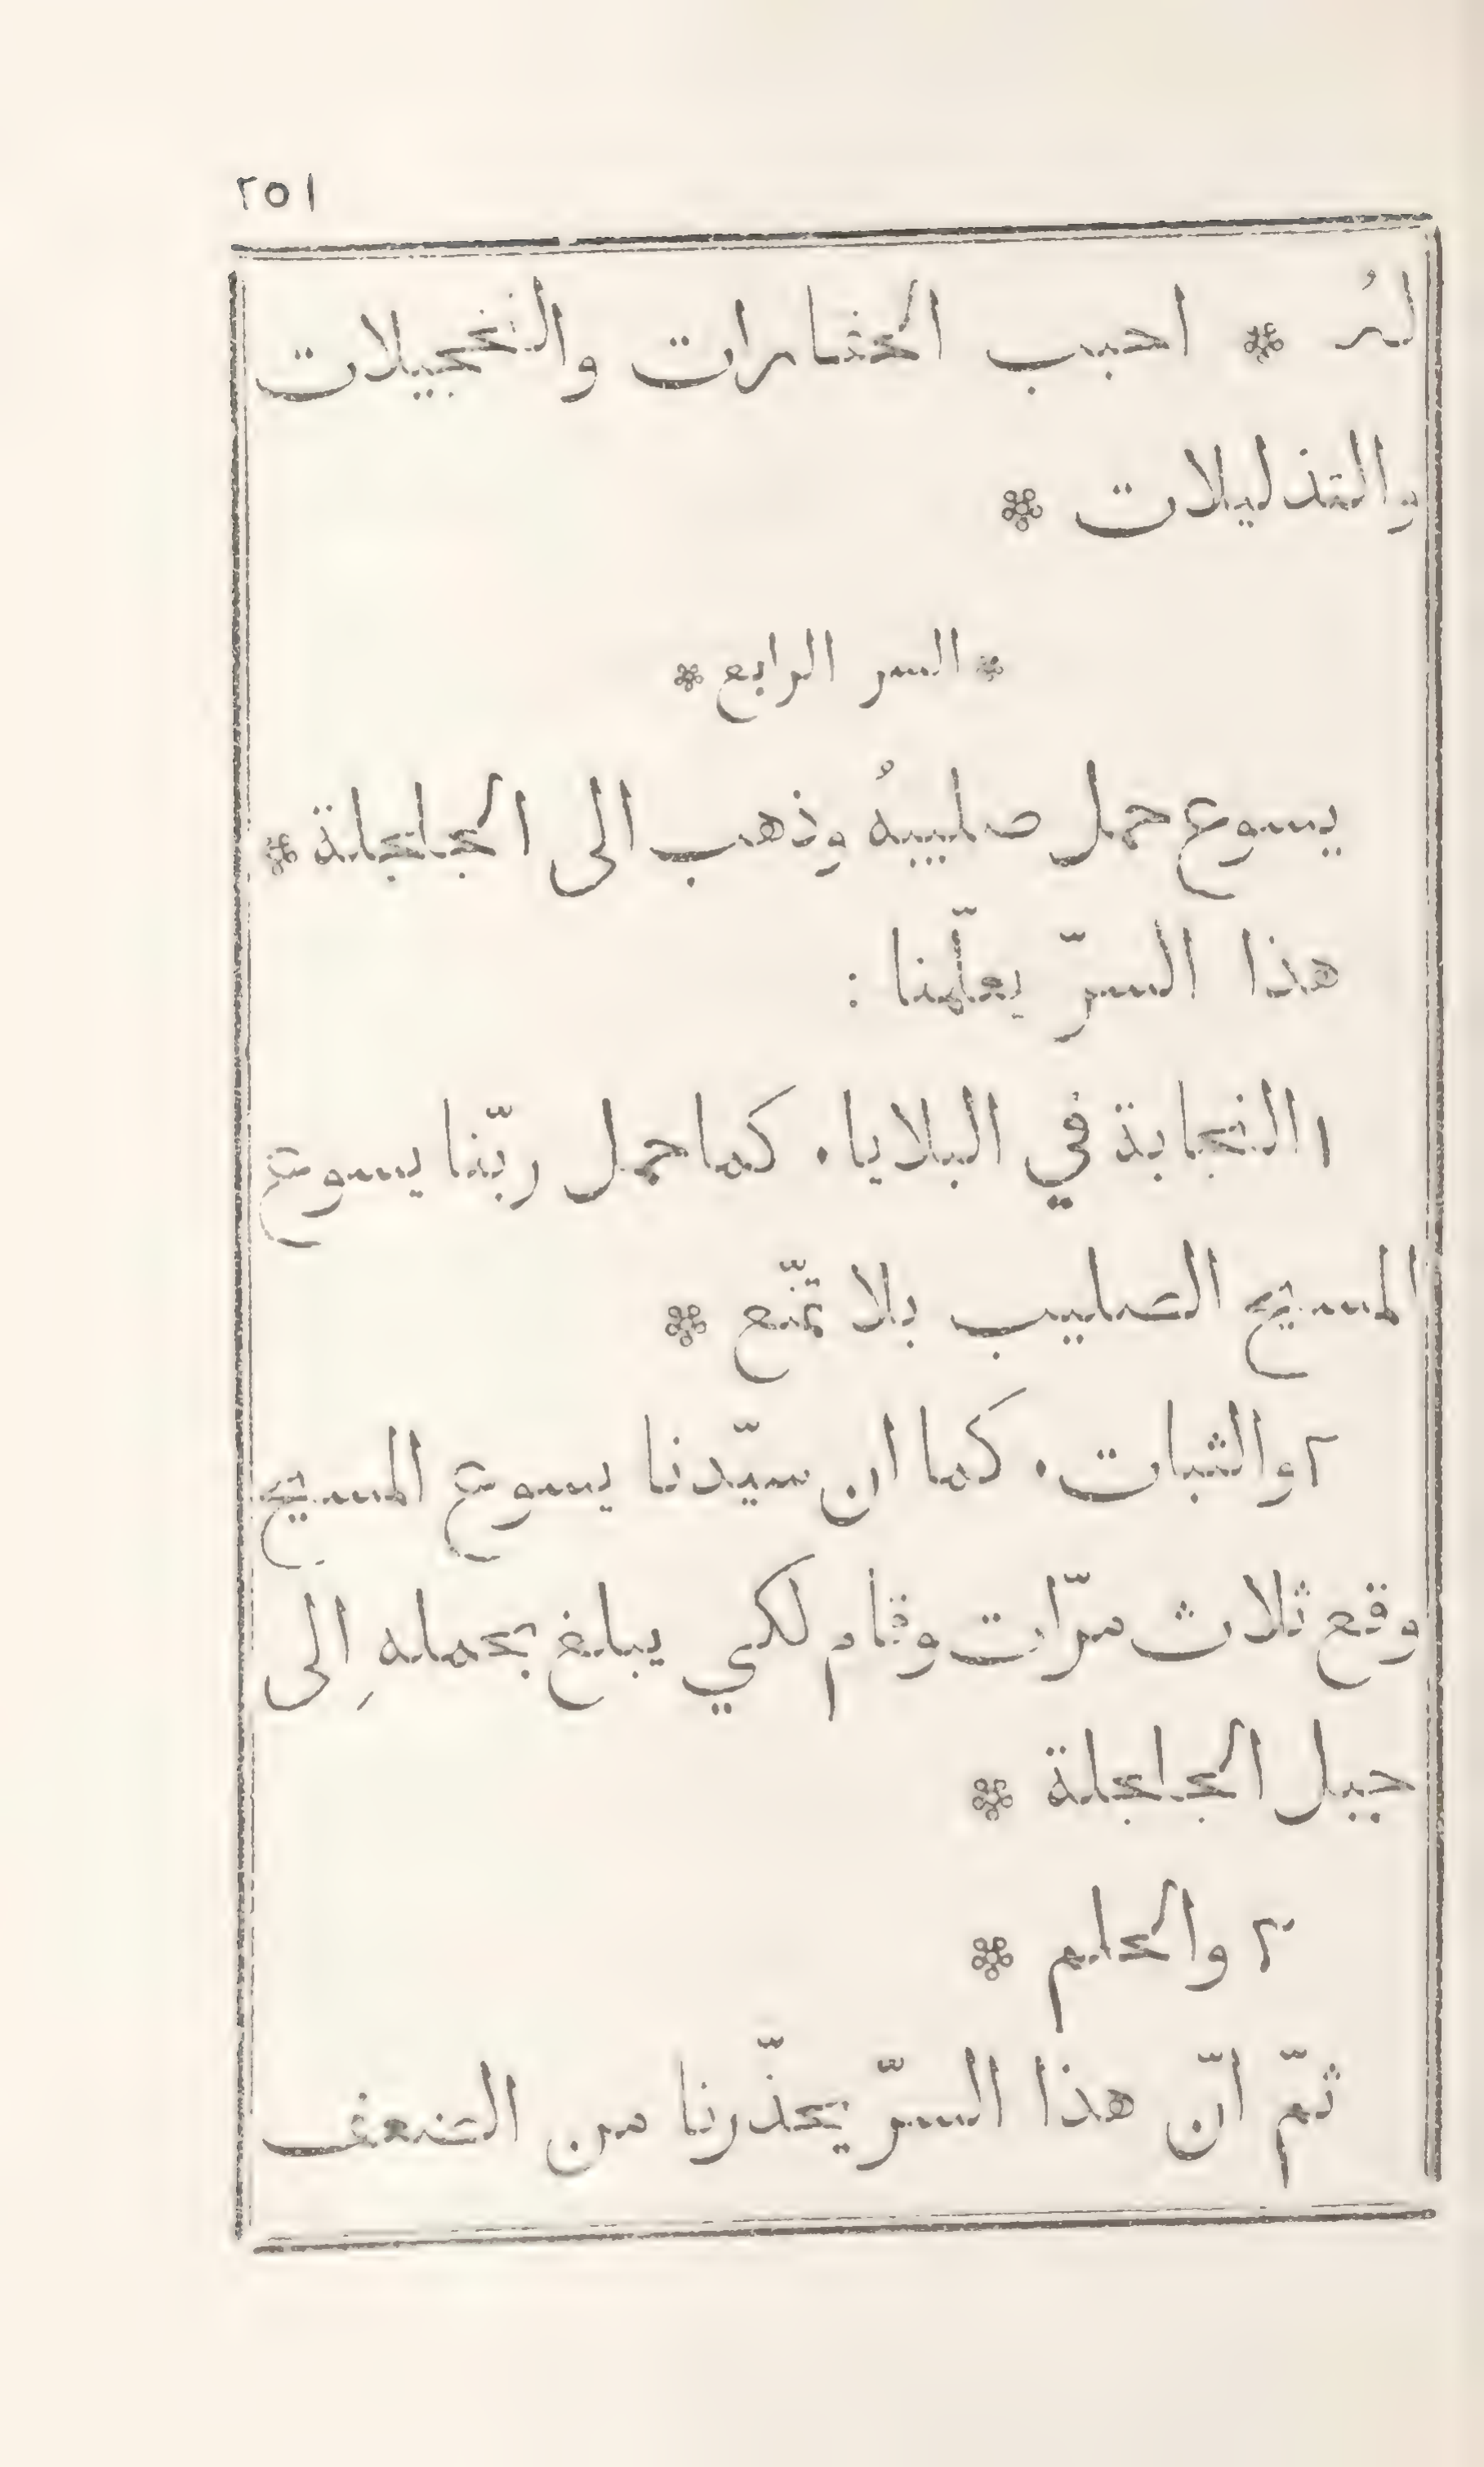 ٢٥١
لهُ * احبب الحقارات والتخجيلات
والتذليلات *
* السر الرابع *
يسوع حمل صليبهُ وذهب الى الجلجلة *
هذا السرّ يعلّمنا :
١ النجابة في البلايا . كما حمل ربّنا يسوع
المسيح الصليب بلا تمنّع *
٢ والثبات . كما ان سيّدنا يسوع المسيح
وقع ثلاث مرّات وقام لكي يبلغ بحملهِ الى
جبل الجلجلة *
٣ والحلم *
ثمّ انّ هذا السرّ يحذّرنا من الضعف